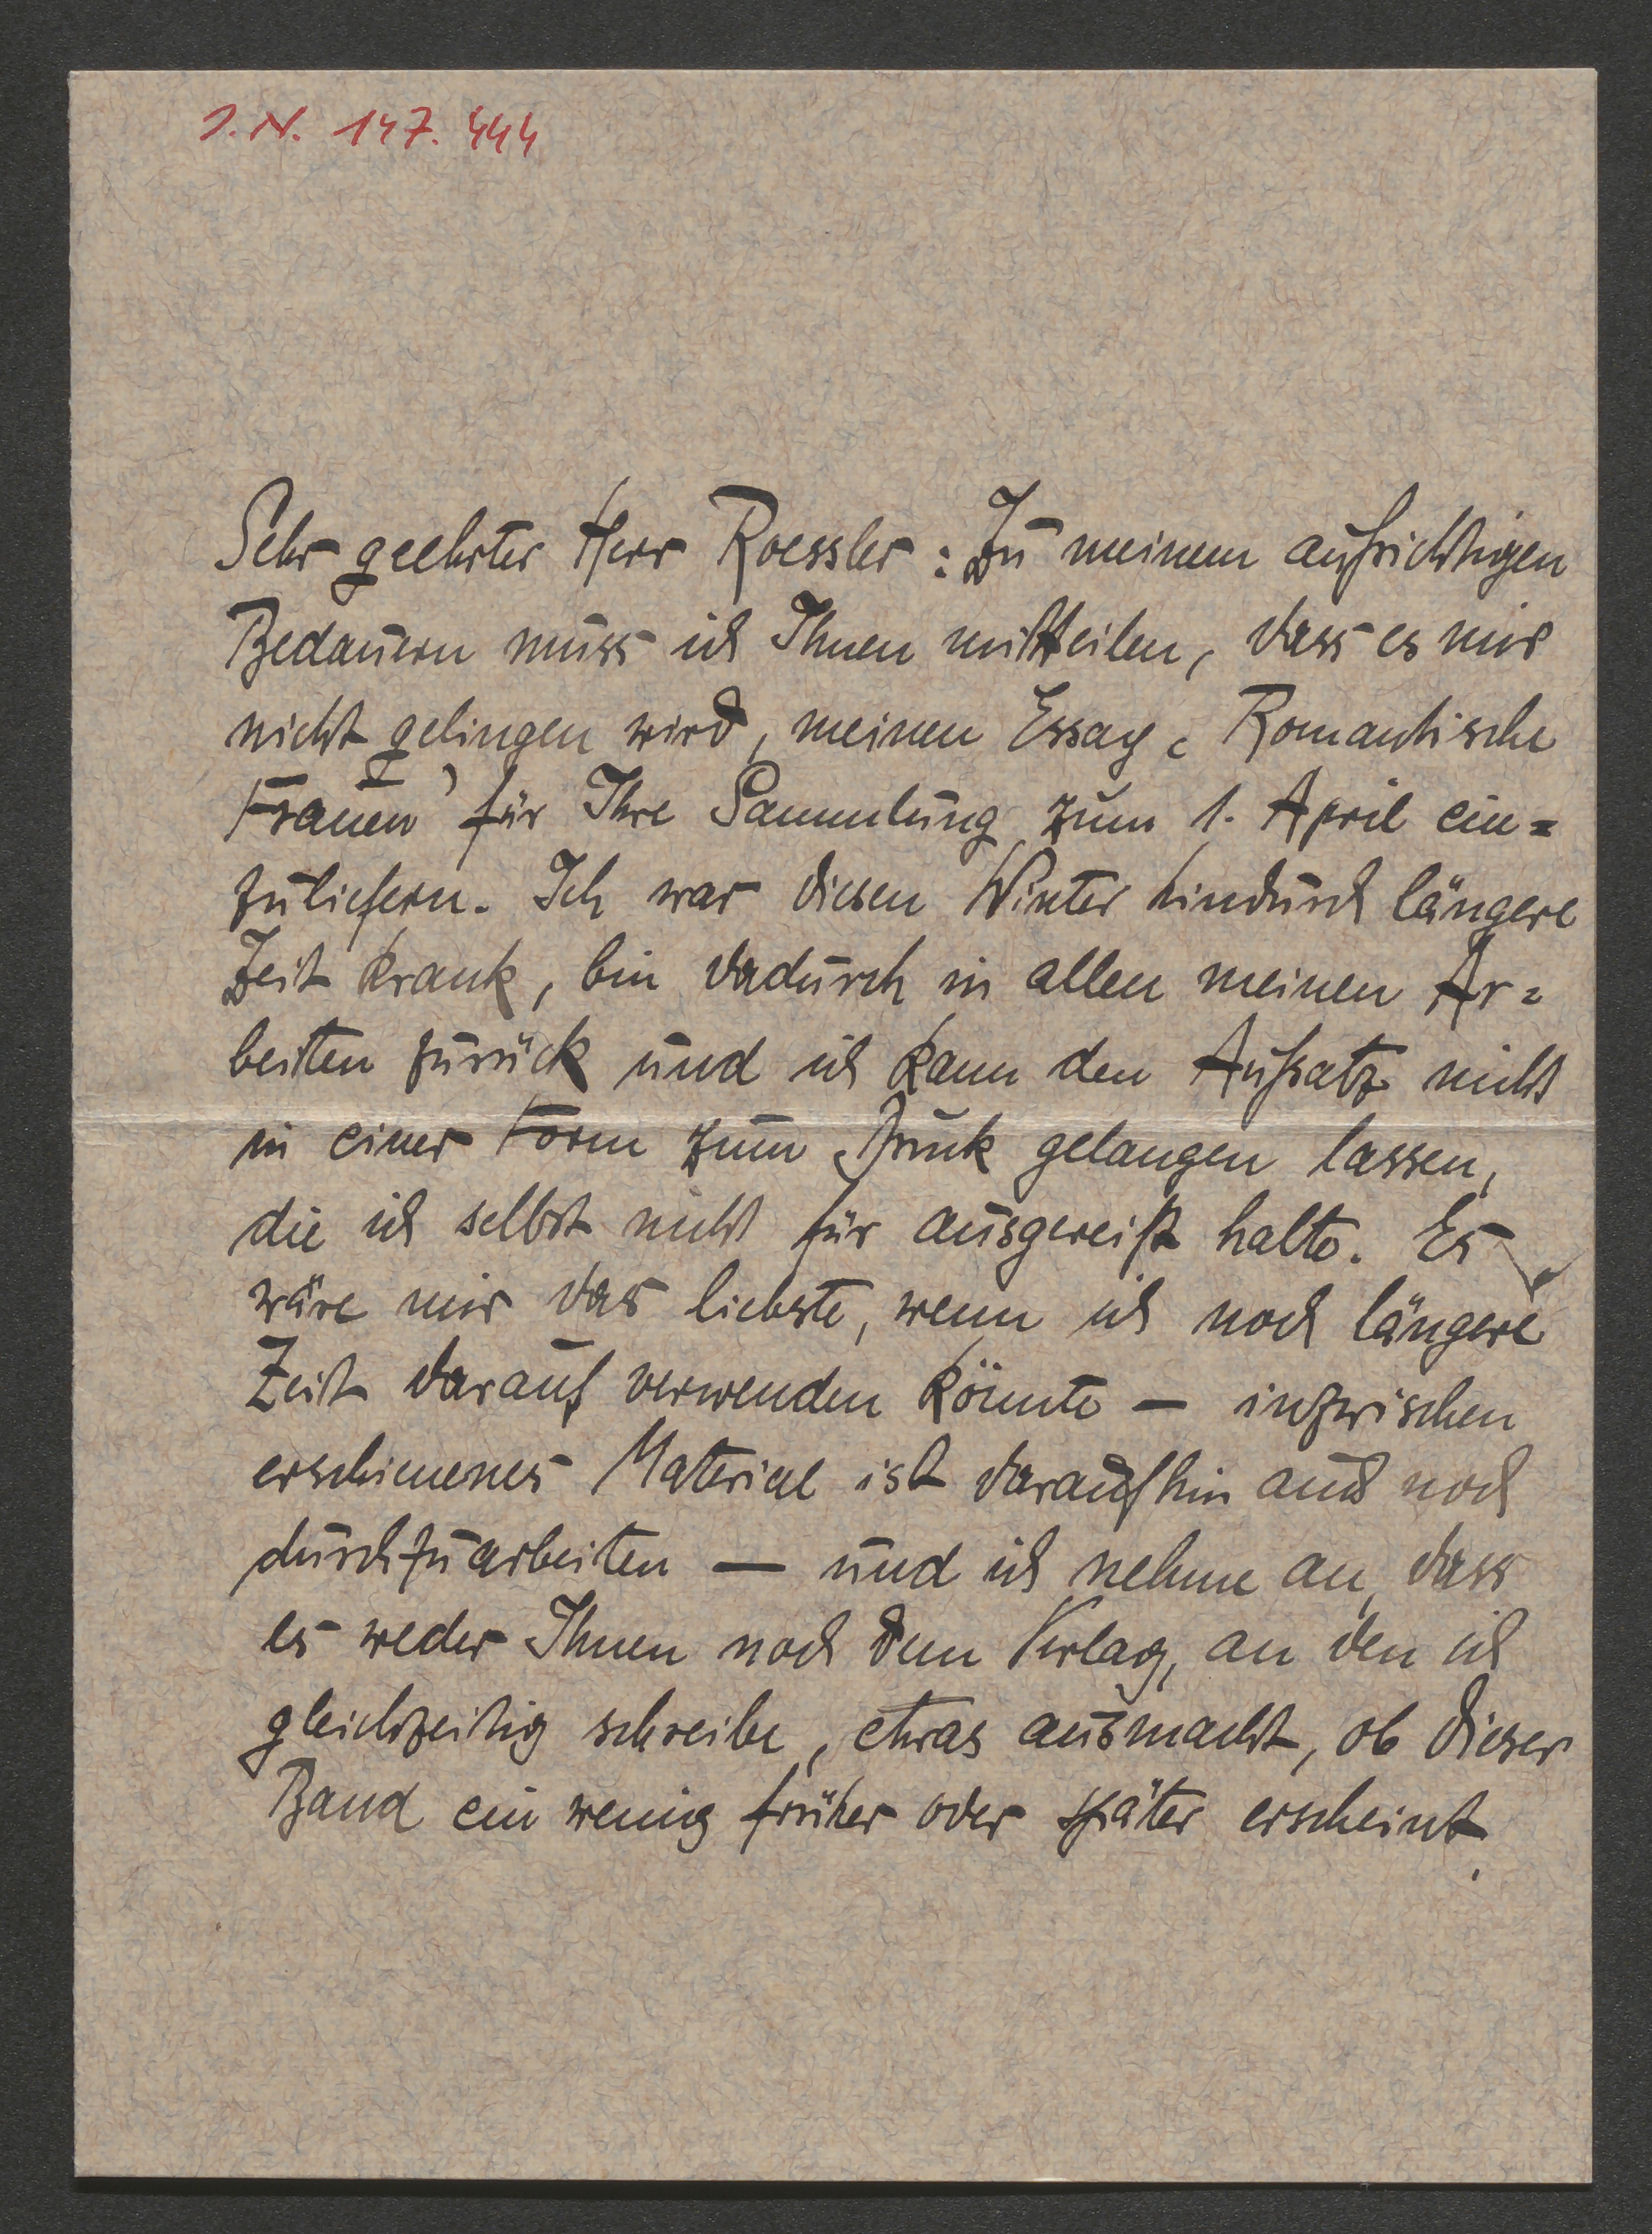 J. N. 147.444
Sehr geehrter Herr Roessler: Zu meinem aufrichtigen
Bedauern muss ich Ihnen mitteilen, dass es mir
nicht gelingen wird, meinen Essay ‚Romantische
Frauen’ für Ihre Sammlung zum 1. April ein=
zuliefern. Ich war diesen Winter hindurch längere
Zeit krank, bin dadurch in allen meinen Ar=
beiten zurück und ich kann den Aufsatz nicht
in einer Form zum Druck gelangen lassen,
die ich selbst nicht für ausgereift halte. Es
wäre mir das liebste, wenn ich noch längere
Zeit darauf verwenden könnte — inzwischen
erschienenes Material ist daraufhin auch noch
durchzuarbeiten — und ich nehme an, dass
es weder Ihnen noch dem Verlag, an den ich
gleichzeitig schreibe, etwas ausmacht, ob dieser
Band ein wenig früher oder später erscheint.